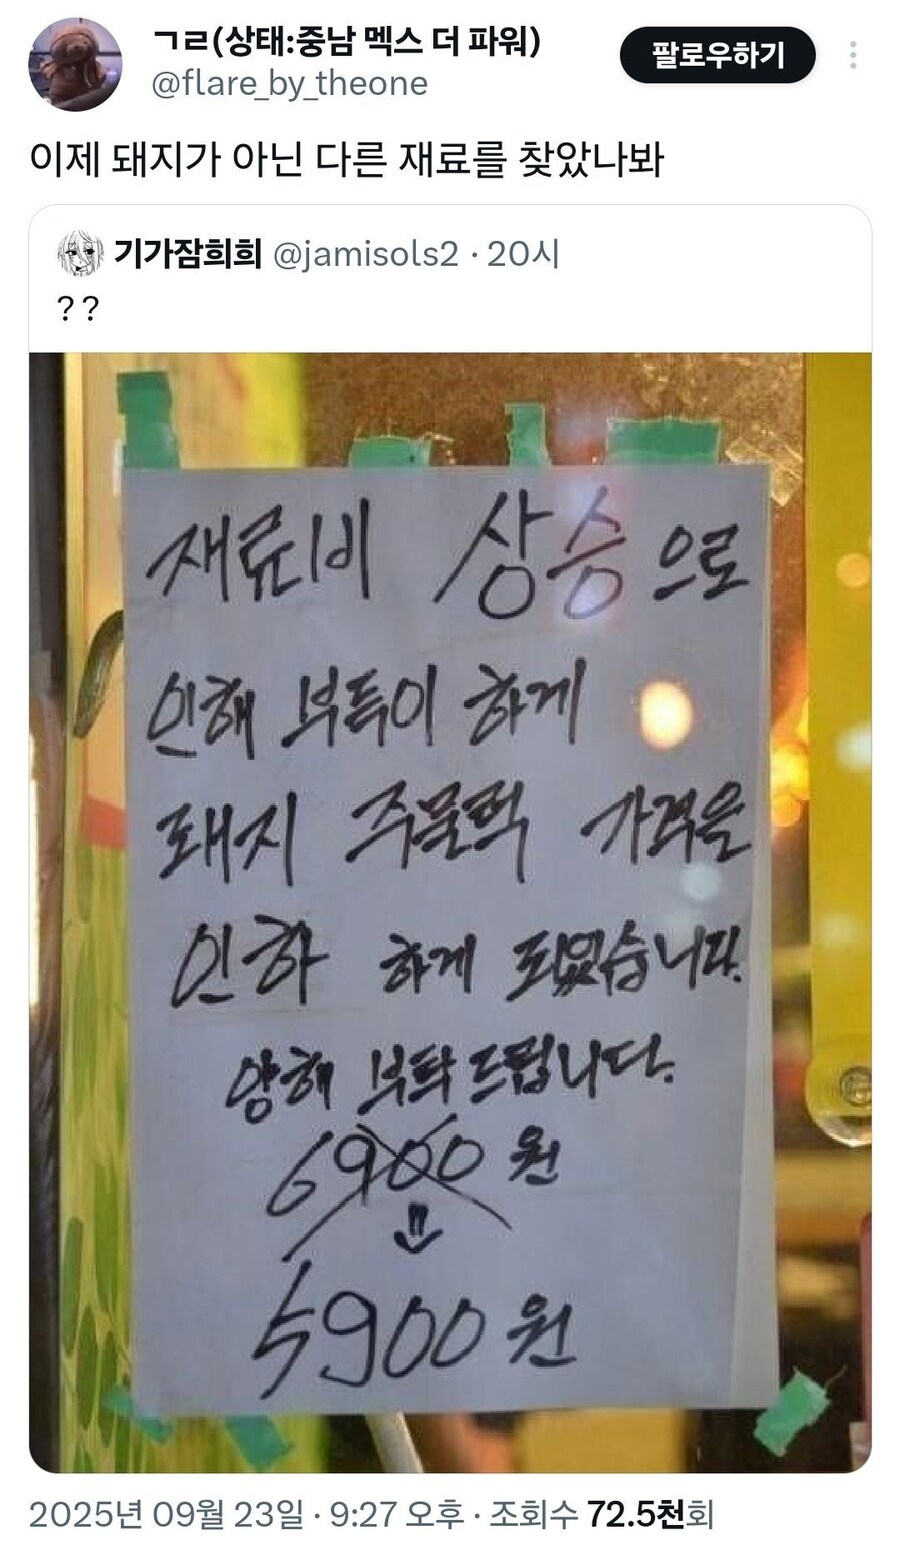 ㄱㄹ(상태:중남 멕스 더 파워)
팔로우하기
@flare_by_theone
이제 돼지가 아닌 다른 재료를 찾았나봐
기가잠희희 @jamisols2 · 20시
??
재료비 상승으로
인해 부득이 하게
돼지 주물럭 가격을
인하 하게 되었습니다.
양해 부탁드립니다.
6900원
⇓
5900원
2025년 09월 23일 · 9:27 오후 · 조회수 72.5천회